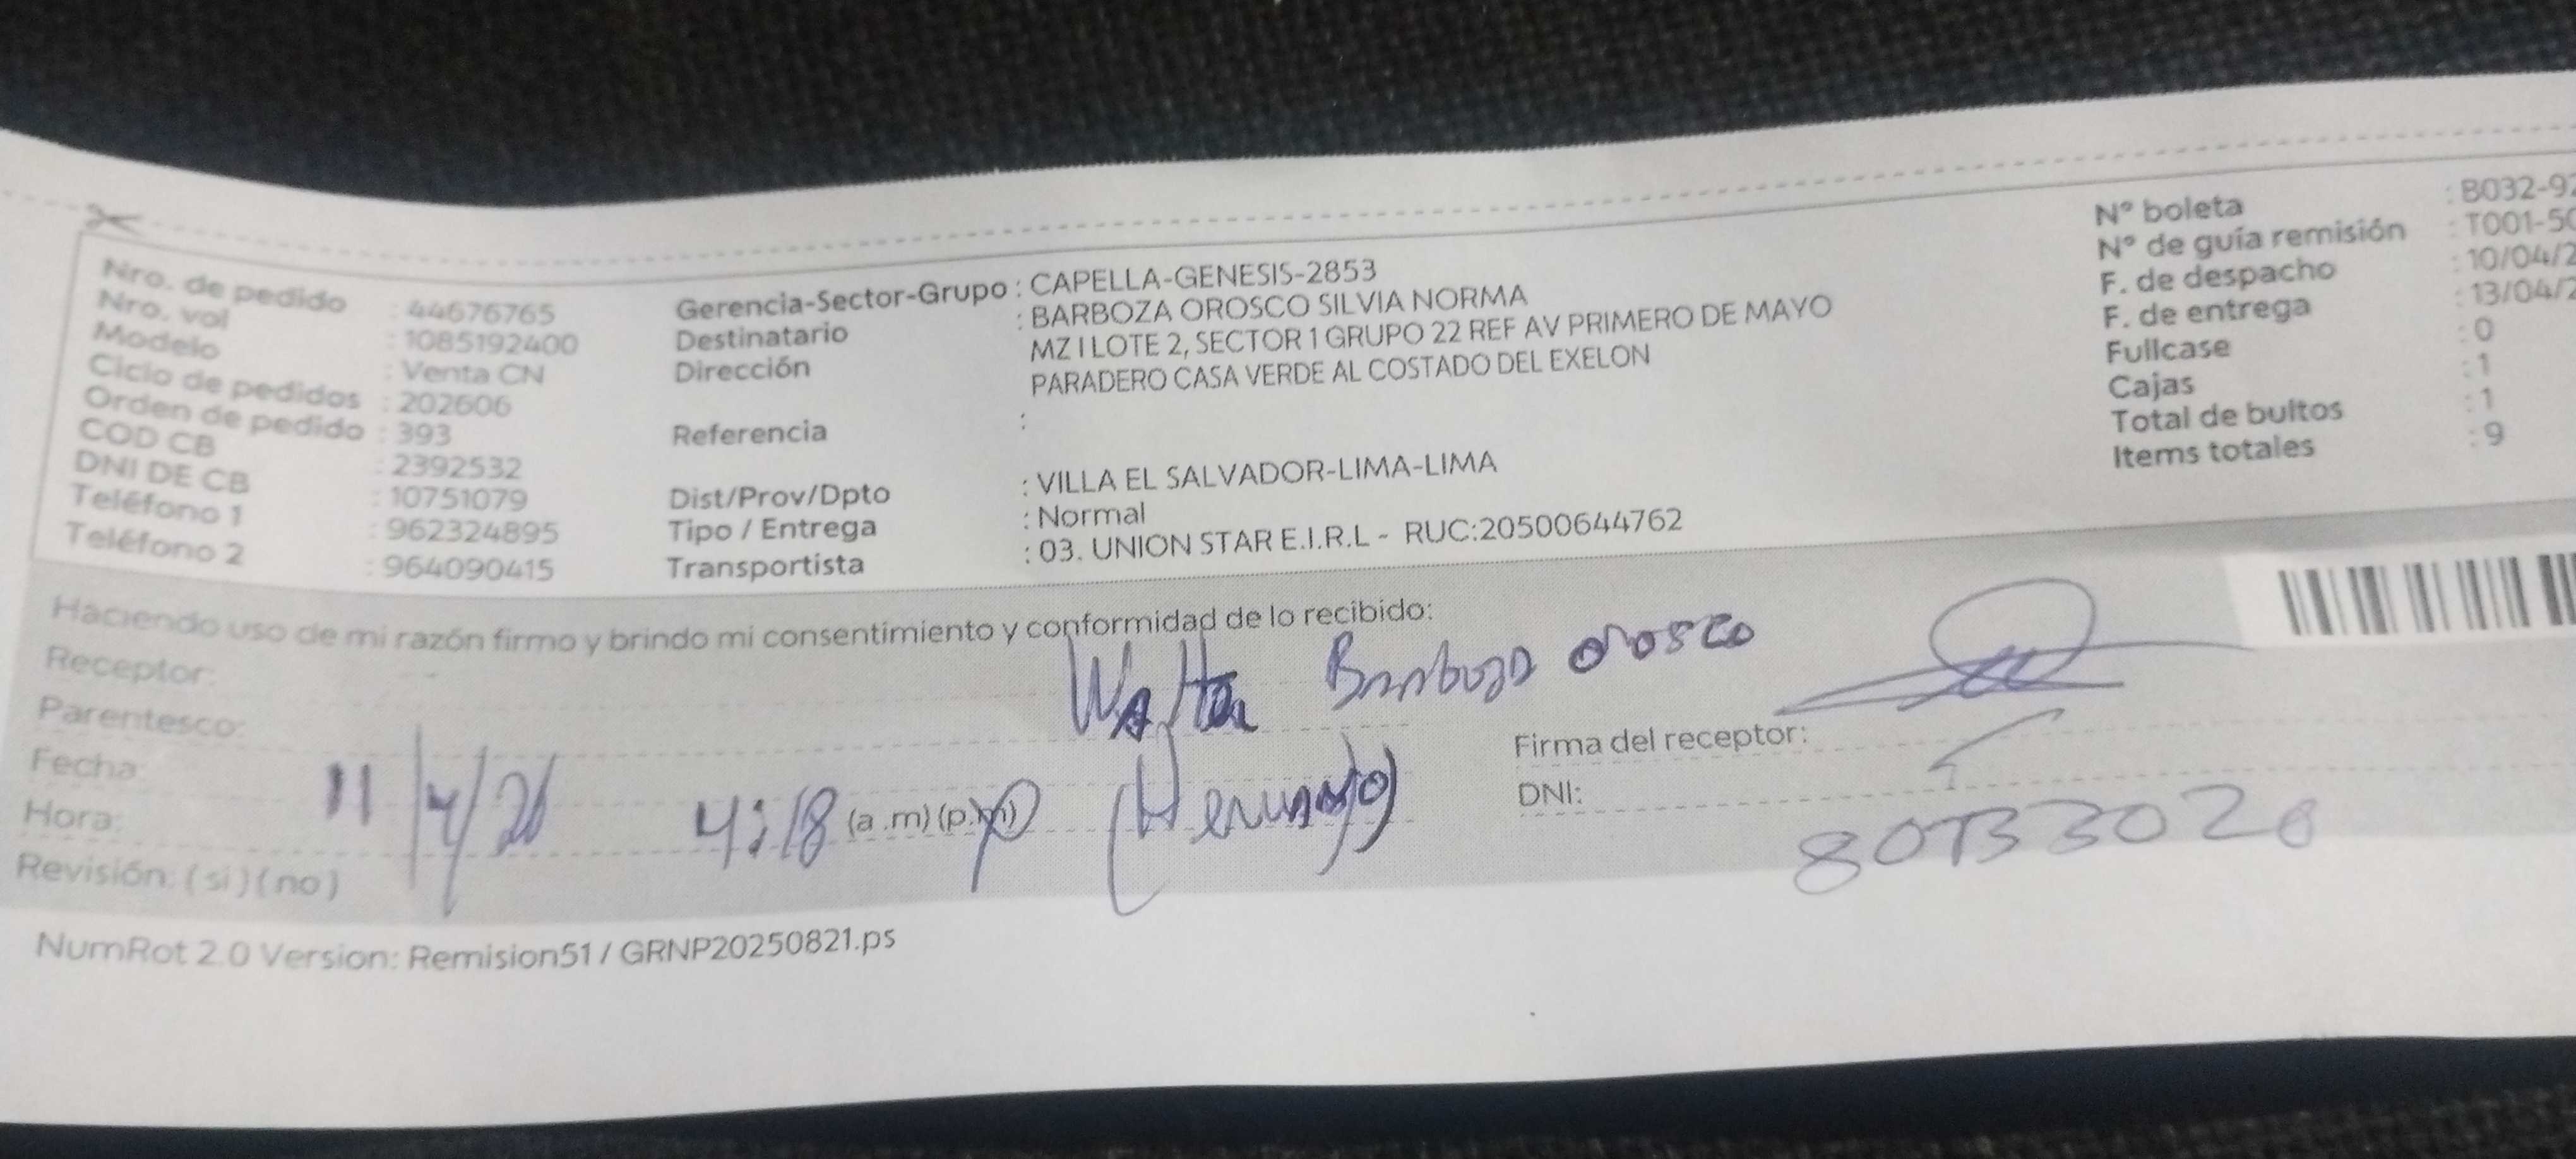 Nro. de pedido : 44676765
Nro. vol : 1085192400
Modelo : Venta CN
Ciclo de pedidos : 202606
Orden de pedido : 393
COD CB : 2392532
DNI DE CB : 10751079
Teléfono 1 : 962324895
Teléfono 2 : 964090415
Gerencia-Sector-Grupo : CAPELLA-GENESIS-2853
Destinatario : BARBOZA OROSCO SILVIA NORMA
Dirección MZ I LOTE 2, SECTOR 1 GRUPO 22 REF AV PRIMERO DE MAYO
PARADERO CASA VERDE AL COSTADO DEL EXELON
Referencia :
Dist/Prov/Dpto : VILLA EL SALVADOR-LIMA-LIMA
Tipo / Entrega : Normal
Transportista : 03. UNION STAR E.I.R.L - RUC:20500644762
N° boleta : B032-92
N° de guía remisión : T001-50
F. de despacho : 10/04/2
F. de entrega : 13/04/2
Fullcase : 0
Cajas : 1
Total de bultos : 1
Items totales : 9
Haciendo uso de mi razón firmo y brindo mi consentimiento y conformidad de lo recibido:
Receptor: Walter Barboza Orosco
Parentesco: (Hermano)
Fecha: 11/4/26
Hora: 4:18 (a .m) (p.m) p
Revisión: ( si ) ( no )
Firma del receptor:
DNI:
NumRot 2.0 Version: Remision51 / GRNP20250821.ps